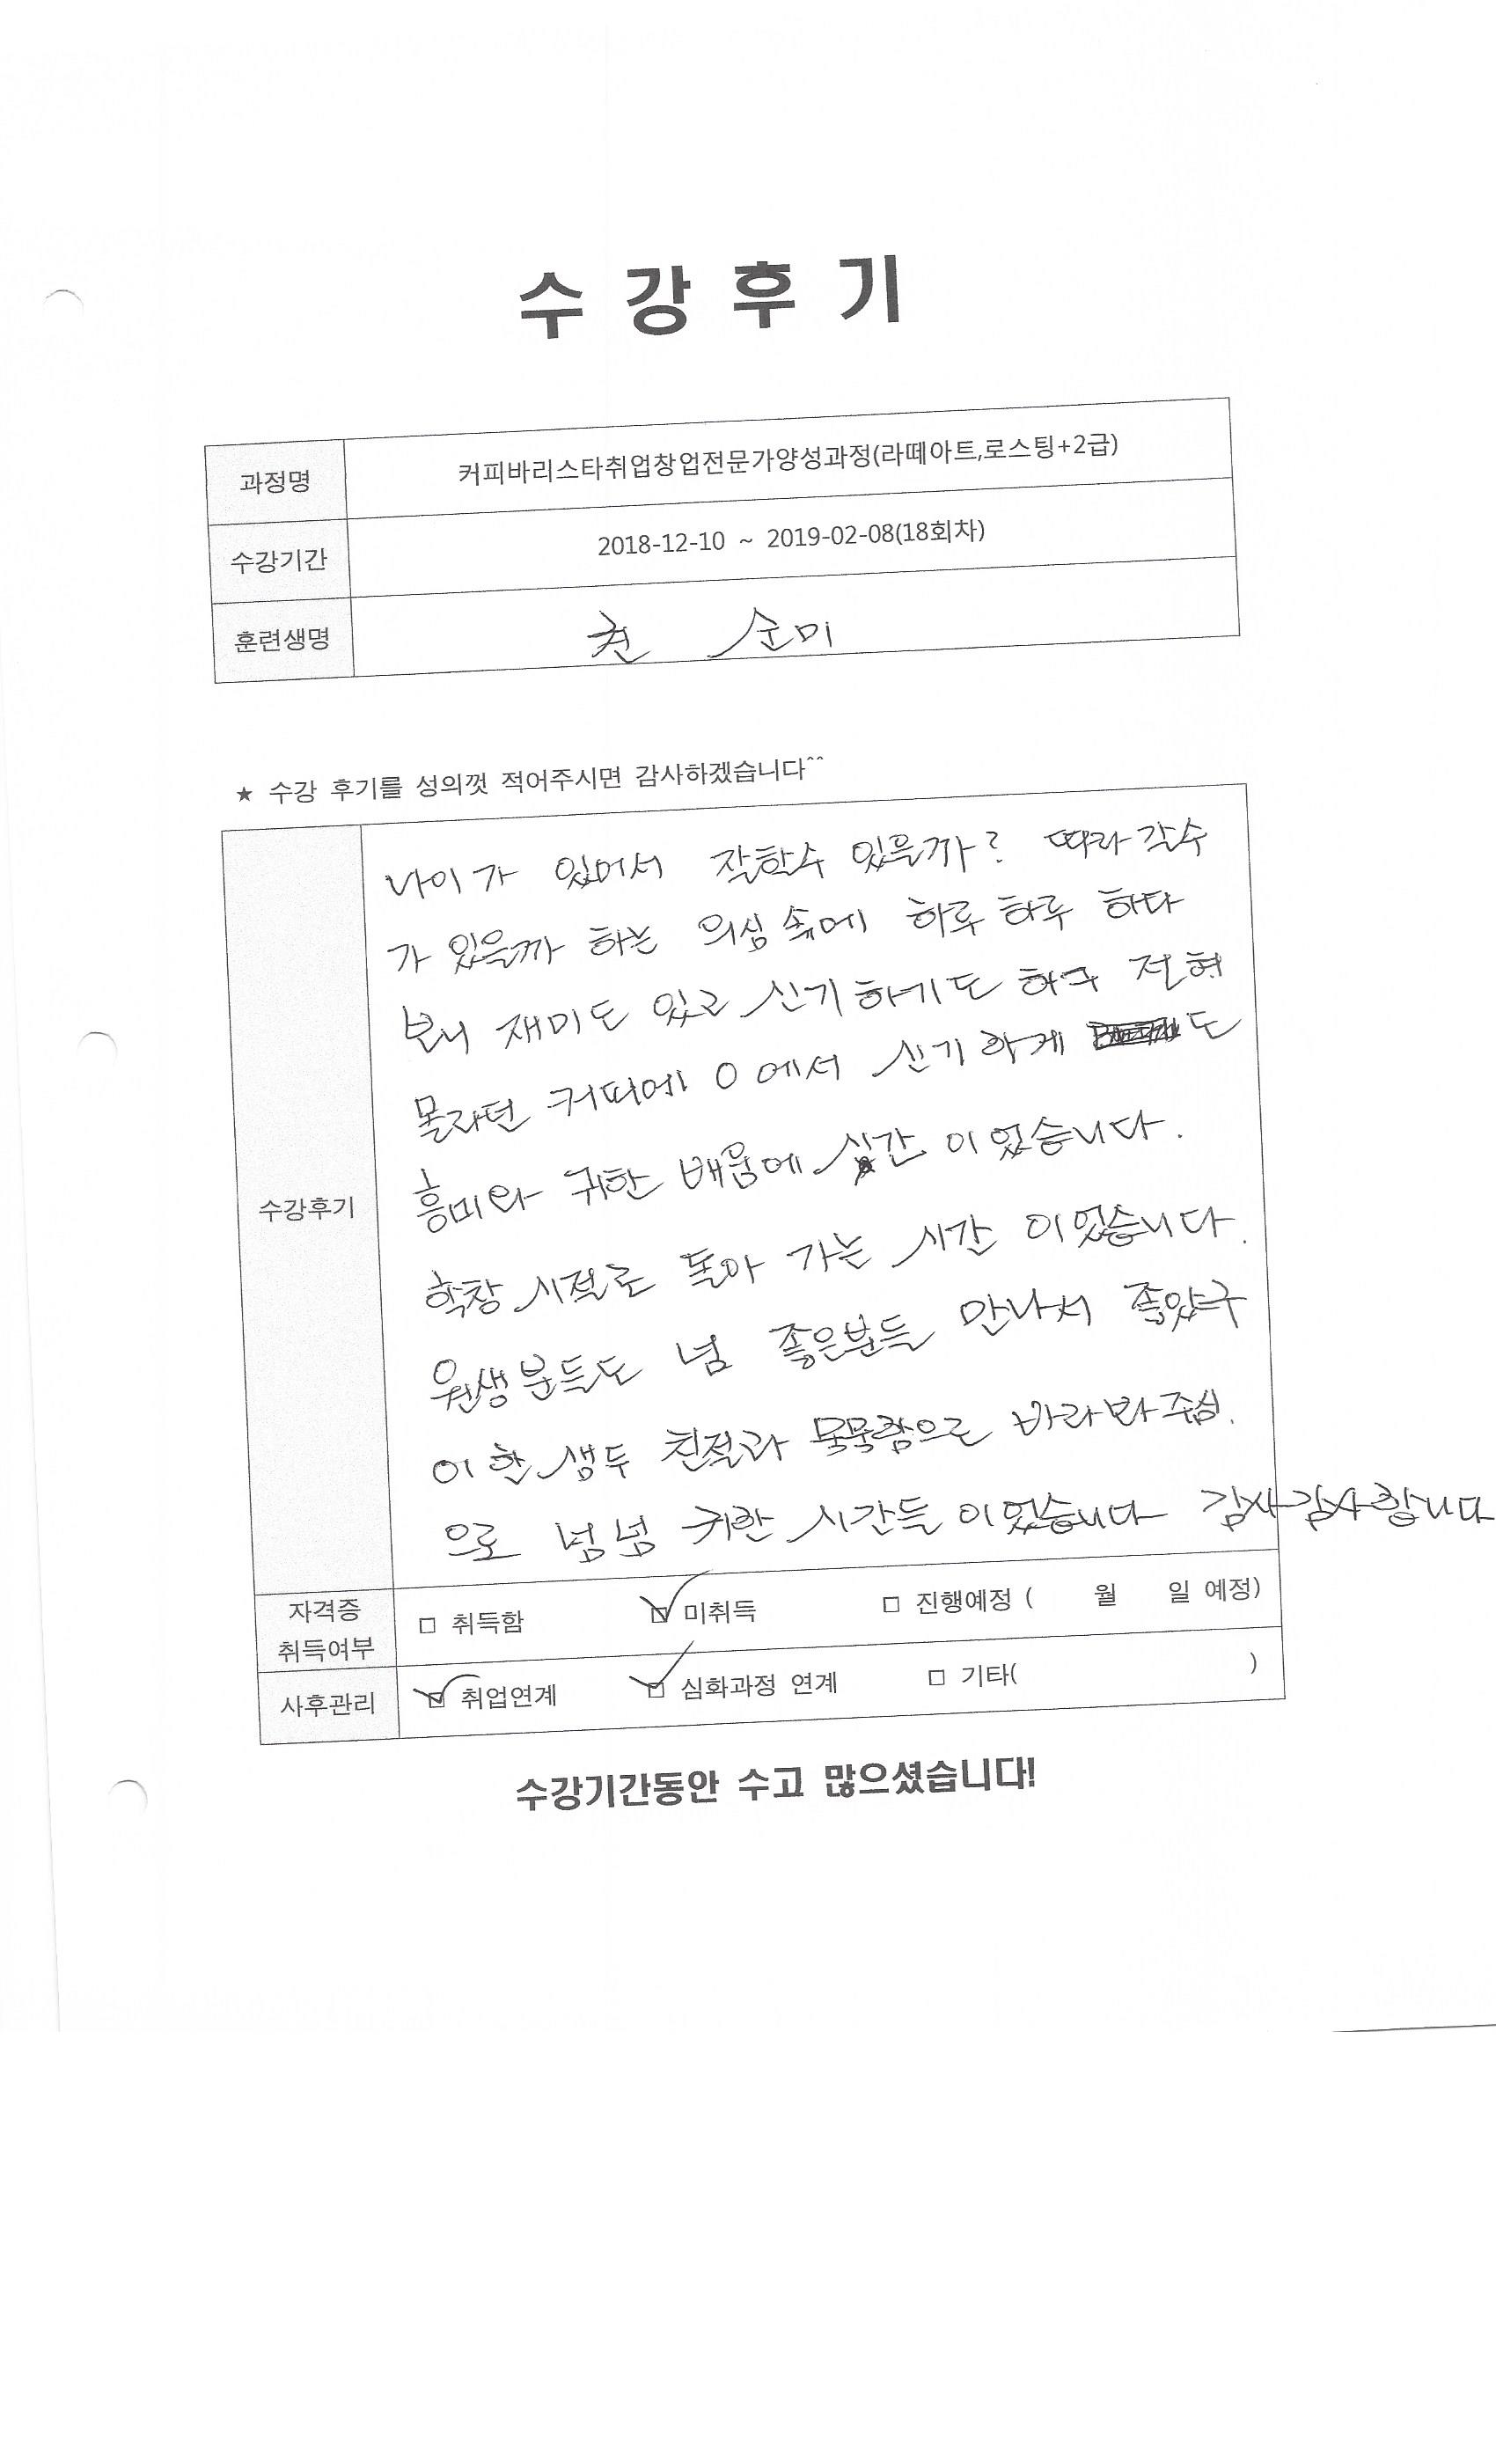 수강후기
과정명 커피바리스타취업창업전문가양성과정(라떼아트,로스팅+2급)
수강기간 2018-12-10 ~ 2019-02-08(18회차)
훈련생명 권 순미
★ 수강 후기를 성의껏 적어주시면 감사하겠습니다^^
수강후기
나이가 있어서 잘할수 있을까? 따라갈수
가 있을까 하는 의심속에 하루하루 하다
보니 재미도 있고 신기하기도 하구 전혀
몰라던 커피에 0에서 신기하게 도
흥미와 귀한 배움에 시간 이였습니다.
학창시절로 돌아 가는 시간 이였습니다.
원생분들도 넘 좋은분들 만나서 좋았구
이한 생두 친절과 묵묵함으로 바라봐주심.
으로 넘넘 귀한 시간들 이였습니다 감사감사합니다
자격증 취득여부 □ 취득함 ☑ 미취득 □ 진행예정 ( 월 일 예정)
사후관리 ☑ 취업연계 ☑ 심화과정 연계 □ 기타( )
수강기간동안 수고 많으셨습니다!